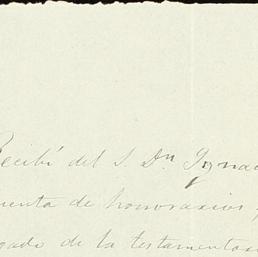 Recibí del S. Dn Ygnac
cuenta de honorarios
gado de la testamentar